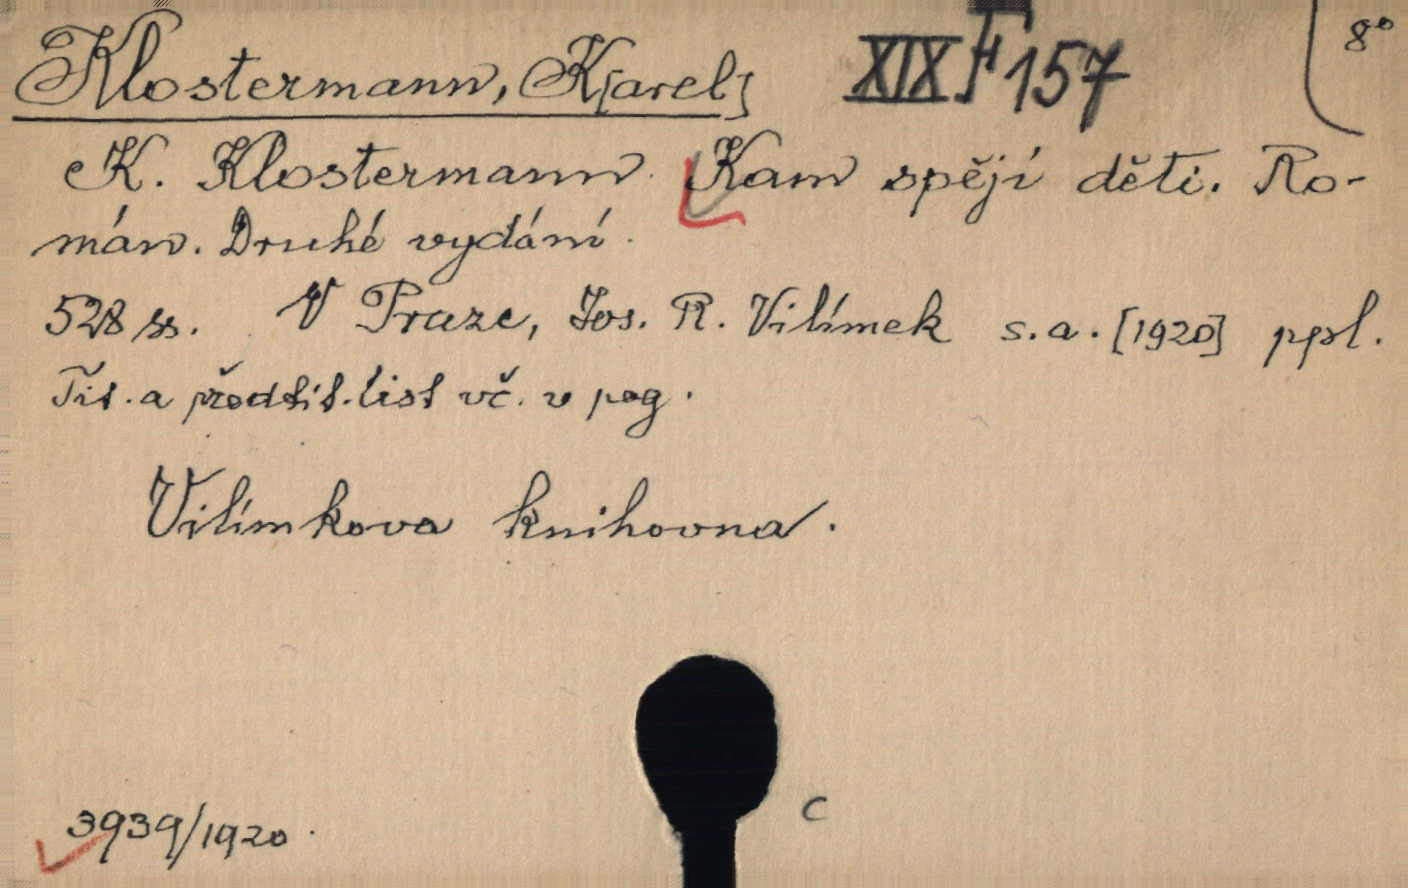 Klostermann, K[arel] XIX F 157 8°
K. Klostermann. Kam spějí děti. Ro-
mán. Druhé vydání.
528 ss. V Praze, Jos. R. Vilímek s.a. [1920] ppl.
Tit. a předtit. list vč. v pag.
Vilímkova knihovna.
C
3939/1920.